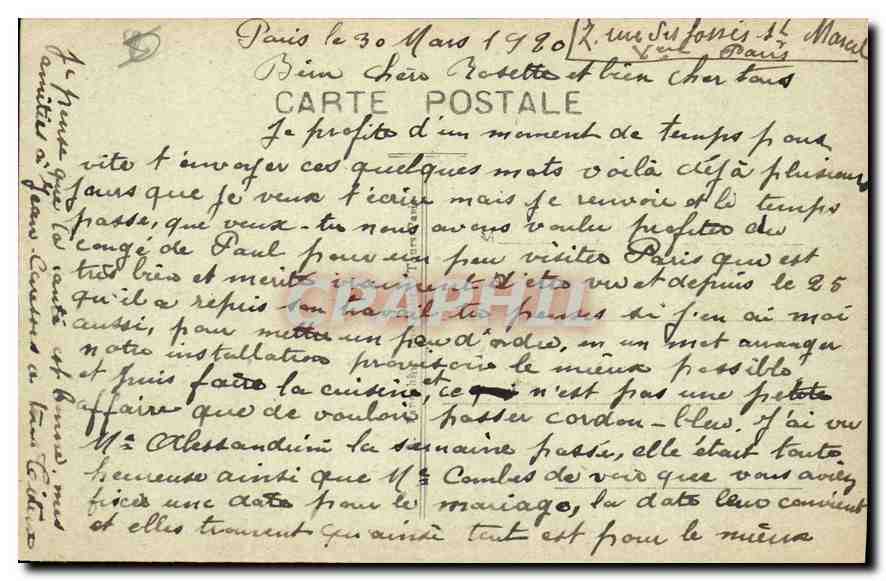 Paris le 30 Mars 1920
2. rue des fossés St Marcel
Vème Paris
Bien chère Rosette et bien cher tous
CARTE POSTALE
Je profite d'un moment de temps pour
vite t'envoyer ces quelques mots voilà déjà plusieurs
jours que je veux t'écrire mais je renvoie et le temps
passe, que veux-tu nous avons voulu profiter du
congé de Paul pour un peu visiter Paris que est
très bien et mérite vraiment d'etre vu et depuis le 25
qu'il a repris son travail tu penses si j'en ai moi
aussi, pour mettre un peu d'ordre, en un mot arranger
notre installation provisoire le mieux possible
et puis faire la cuisine, et ce n'est pas une petite
affaire que de vouloir passer cordon-bleu. J'ai vu
Me Alessandrini la semaine passée, elle était toute
heureuse ainsi que Me Combes de voir que vous aviez
fixée une date pour le mariage, la date leur convient
et elles trouvent qu'ainsi tout est pour le mieux
Je pense que la santé est bonne. mes
amitiés à Jean. Caresses a tous
CPAPHIL